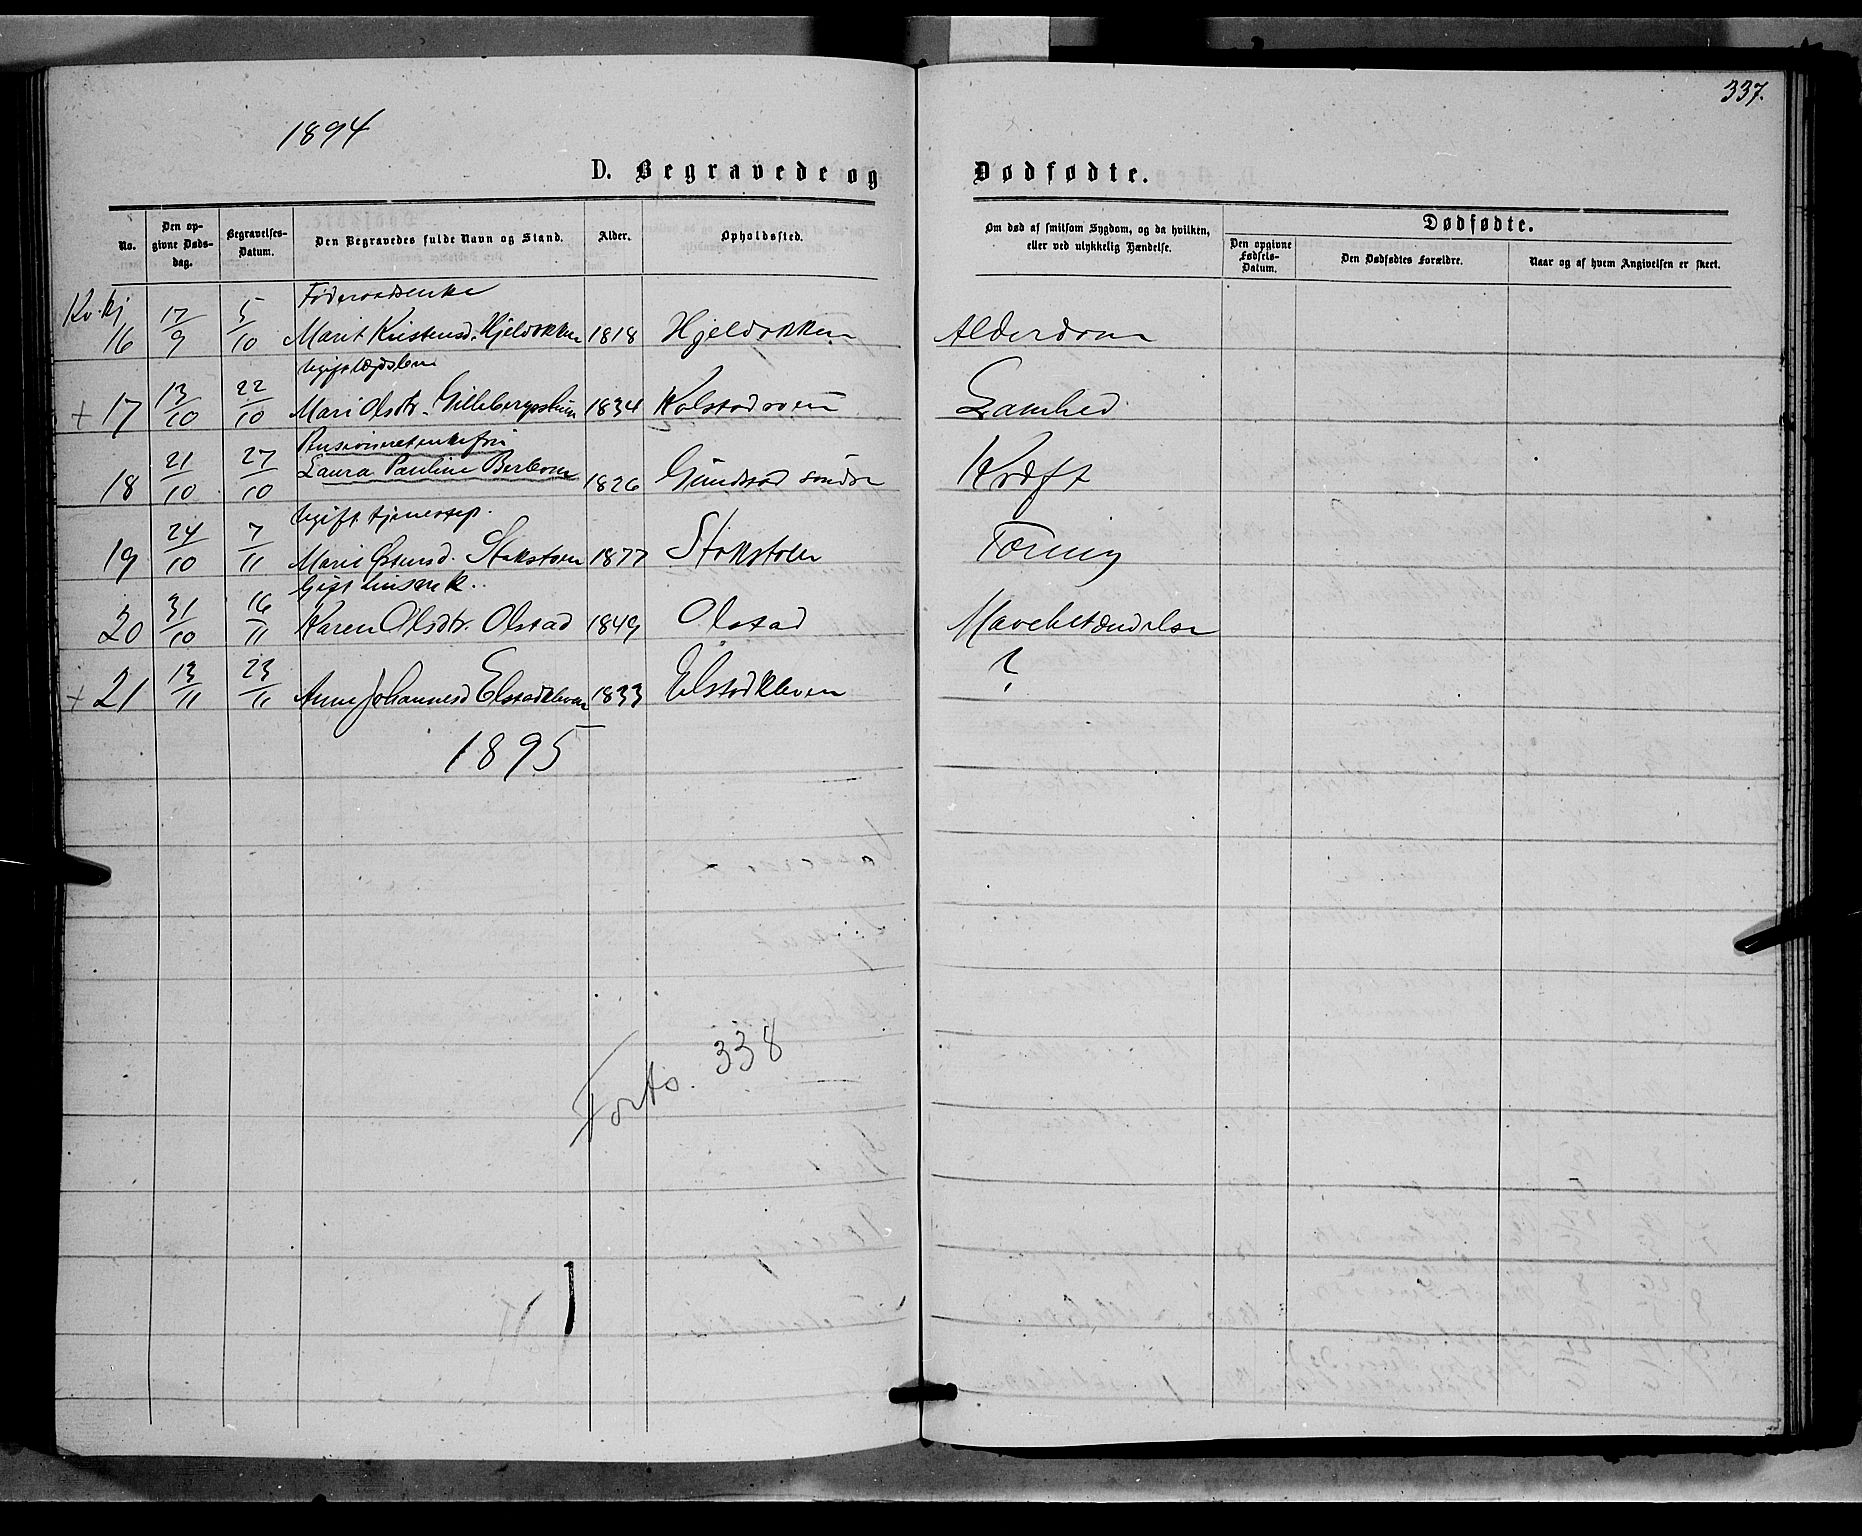 337.
1894
D. Begravede og Dødfødte.
No.
Den opgivne Døds-dag.
Begravelses-Datum.
Den Begravedes fulde Navn og Stand.
Alder.
Opholdssted.
Om død af smitsom Sygdom, og da hvilken, eller ved ulykkelig Hændelse.
Dødfødte.
Den opgivne Fødsels-Datum.
Den Dødfødtes Forældre.
Naar og af hvem Angivelsen er skeet.
Kv.kj
Føderaadsenke
16 17/9 5/10 Marit Kristensd. Hjeldokken 1818 Hjeldokken Alderdom
Ugift Lægdslem
+ 17 13/10 22/10 Mari Olsdtr. 1834 Lamhed
18 21/10 27/10 Laura Pauline 1826 Gundstad søndre Kræft
Ugift tjenestep.
19 24/10 7/11 Marie 1877 Tæring
Gift
20 31/10 16/11 Karen Olsdtr. Olstad 1849 Olstad Mavebetændelse
+ 21 13/11 23/11 Anne Johannesd Elstadkleven 1833 Elstadkleven ?
1895
Forts. 338